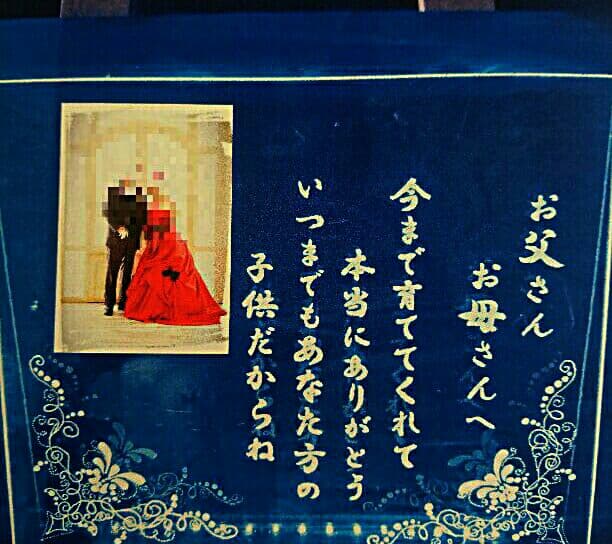 お父さん
お母さんへ
今まで育ててくれて
本当にありがとう
いつまでもあなた方の
子供だからね